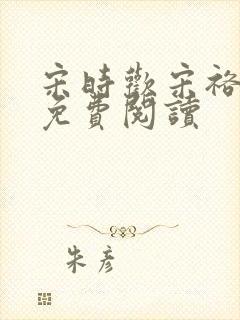 宋時歡宋裕
免費閱讀
朱彥